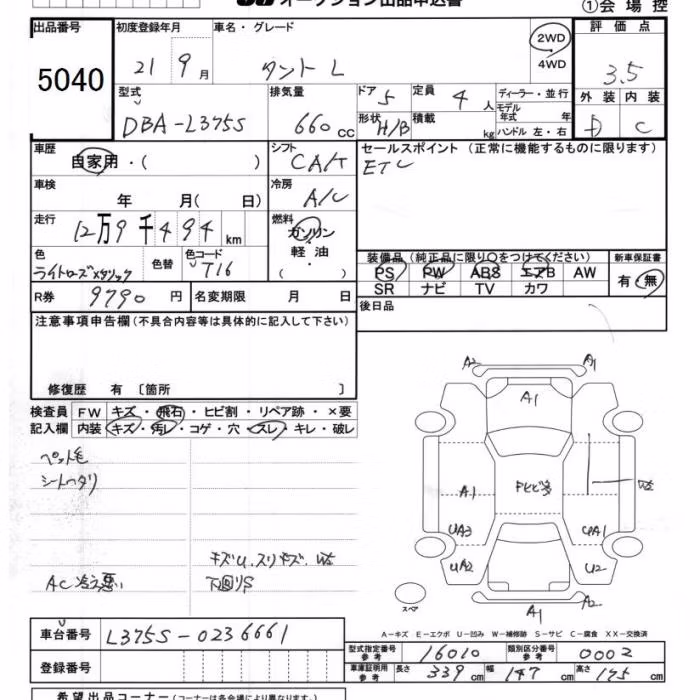 オークション出品申込書
①会場控
出品番号
5040
初度登録年月
21 9月
車名・グレード
タント L
2WD
4WD
評価点
3.5
外装 内装
D C
型式
DBA-L375S
排気量
660 cc
ドア 5
定員 4 人
形状 H/B
積載 kg
ディーラー・並行
モデル年式 年
ハンドル 左・右
車歴
自家用・( )
シフト
CA/T
セールスポイント (正常に機能するものに限ります)
ETC
車検
年 月( 日)
冷房
A/C
走行
12万9千494km
燃料
ガソリン
・
軽油
( )
色
ライトローズメタリック
色替
色コード
T16
装備品 (純正品に限り○をつけてください)
PS PW ABS エアB AW
SR ナビ TV カワ
新車保証書
有・無
R券 9790円
名変期限 月 日
後日品
注意事項申告欄(不具合内容等は具体的に記入して下さい)
修復歴 有〔箇所 〕
検査員記入欄
FW キズ・飛石・ヒビ割・リペア跡・×要
内装 キズ・汚レ・コゲ・穴・スレ・キレ・破レ
ペット毛
シートヘタリ
AC冷え悪い
キズU.スリキズ.
下回りS
A2 A1
A1
A1
UA3 UA1
UA2 U2
A1 A2
スペア
A-キズ E-エクボ U-凹み W-補修跡 S-サビ C-腐食 XX-交換済
車台番号
L375S-0236661
登録番号
型式指定番号 参考 16010
類別区分番号 参考 0002
車庫証明用 参考 長さ 339cm 幅 147cm 高さ 175cm
希望出品コーナー(コーナーは各会場により異なります)